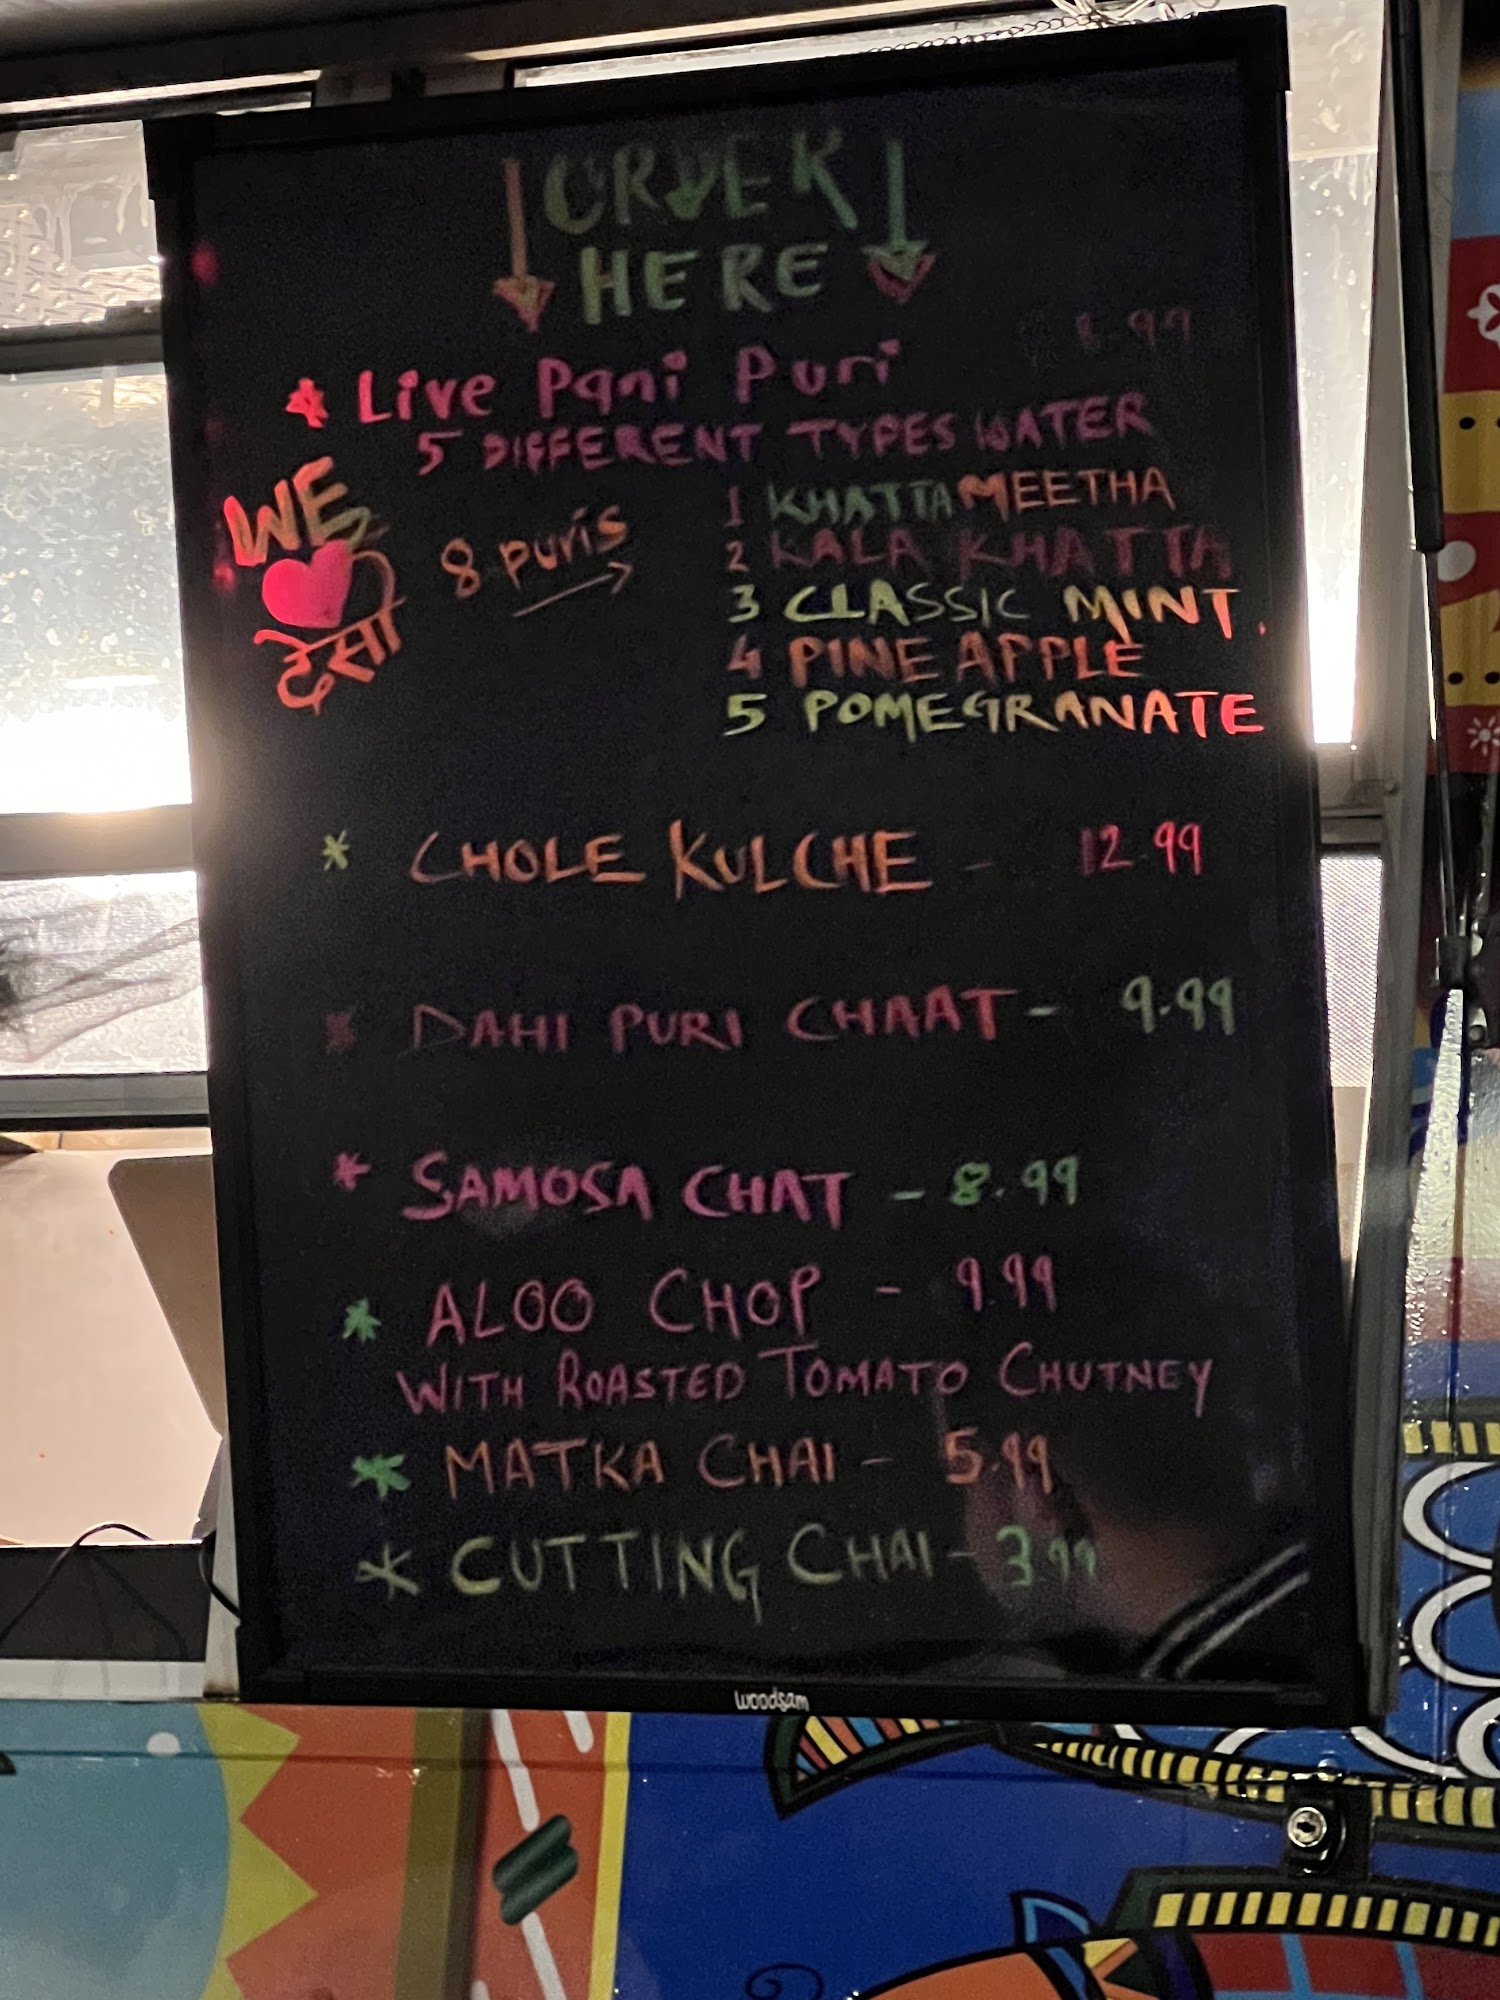 ORDER
HERE
8.99
* Live Pani Puri
5 DIFFERENT TYPES WATER
WE
देसी
8 puris
1 KHATTA MEETHA
2 KALA KHATTA
3 CLASSIC MINT.
4 PINEAPPLE
5 POMEGRANATE
* CHOLE KULCHE - 12.99
* DAHI PURI CHAAT - 9.99
* SAMOSA CHAT - 8.99
* ALOO CHOP - 9.99
WITH ROASTED TOMATO CHUTNEY
* MATKA CHAI - 5.99
* CUTTING CHAI - 3.99
woodsam